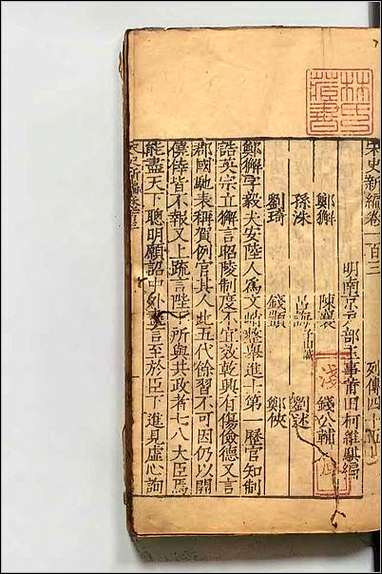 宋史新編卷一百三 列傳四十五
明南京戶部主事莆田柯維騏編
鄭獬 陳襄 錢公輔
孫洙 呂誨 劉述
劉琦 錢顗 鄭俠
鄭獬字毅夫安陸人為文峭整舉進士第一歷官知制
誥英宗立獬言昭陵制度不宜效乾興有傷儉德又言
郡國馳表稱賀例官其人此五代餘習不可因仍以開
僥倖皆不報又上疏言陛下所與共政者七八大臣焉
能盡天下聰明願詔中外
言至於臣下進見虛心詢
林氏藏書